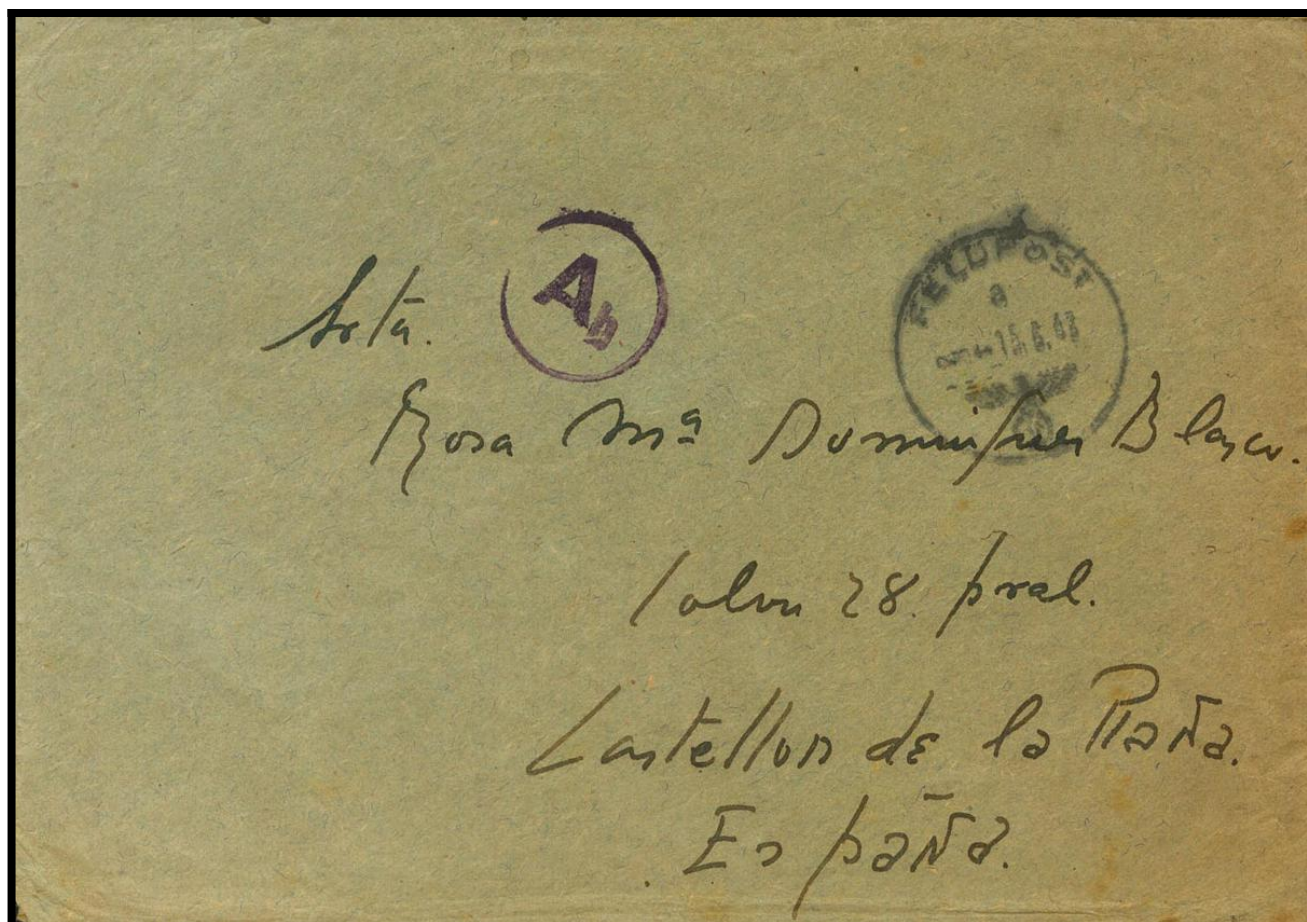 Ab
FELDPOST
a
15.6.43
Srta.
Rosa Mª Dominguez Blasco.
28. pral.
Castellon de la Plaña.
España.